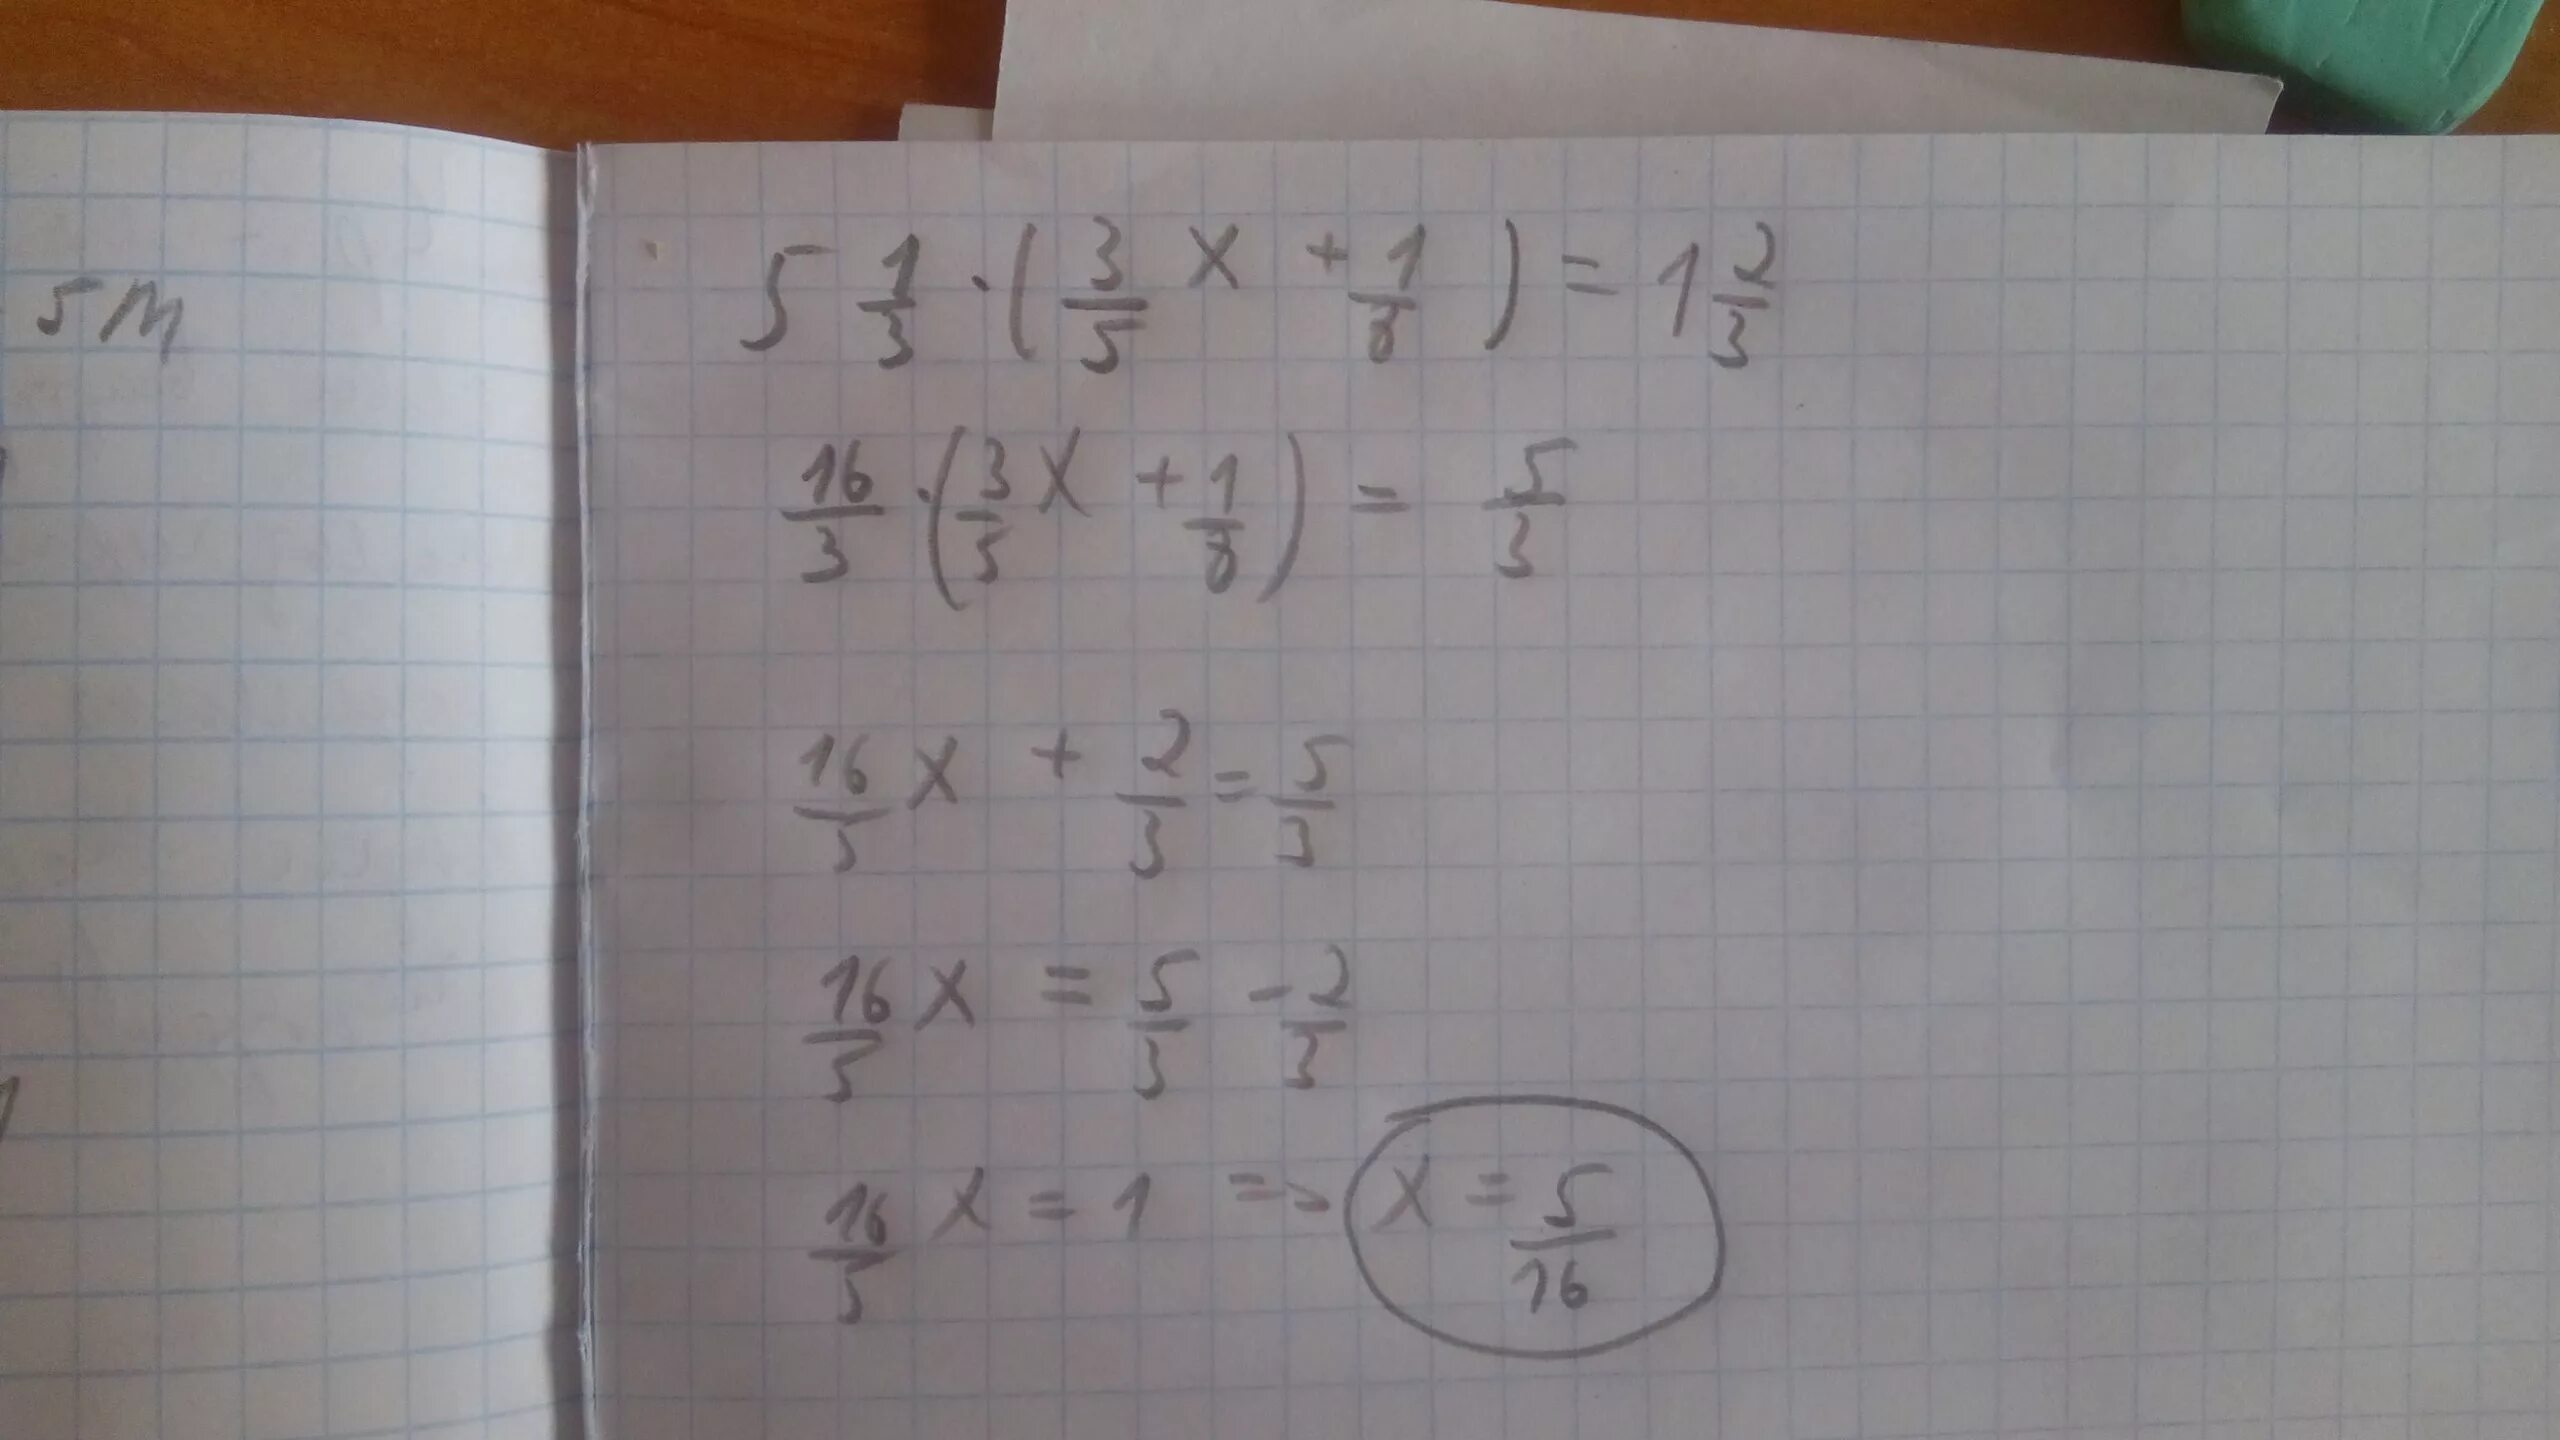 5 m
5 1/3 · ( 3/5 x + 1/8 ) = 1 2/3
16/3 · ( 3/5 x + 1/8 ) = 5/3
16/5 x + 2/3 = 5/3
16/5 x = 5/3 - 2/3
16/5 x = 1 => x = 5/16